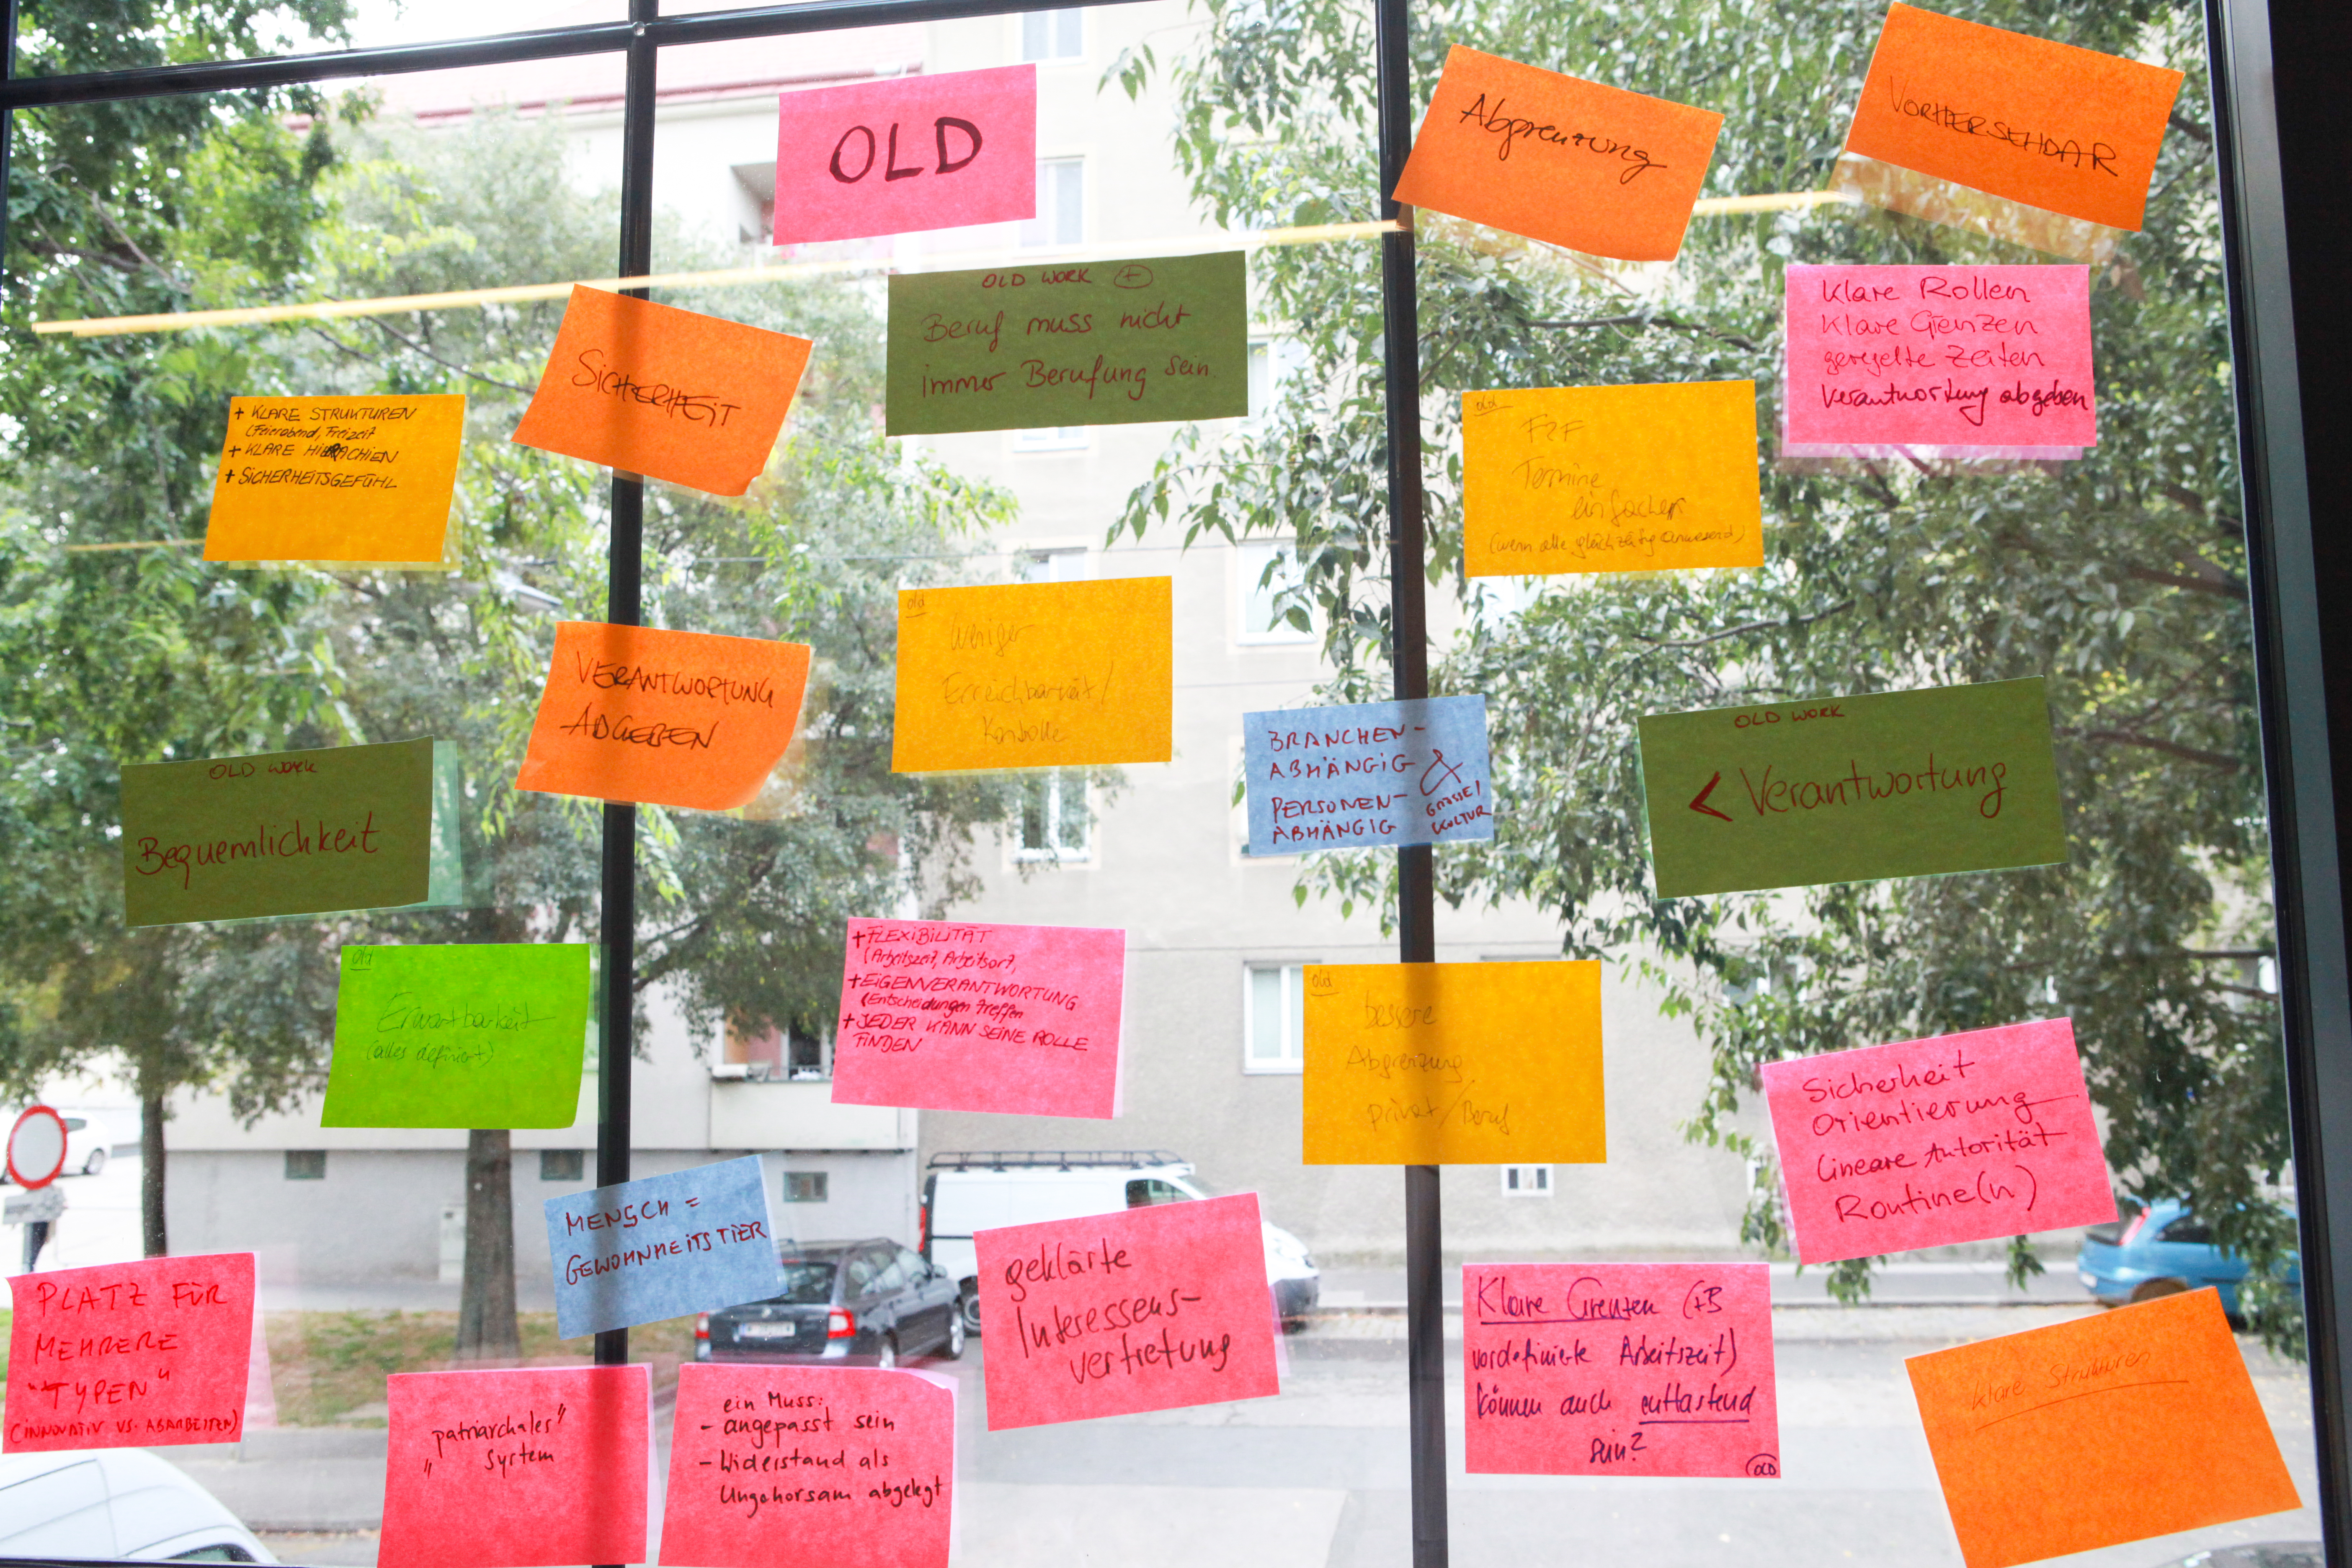 OLD
Abgrenzung
VORHERSEHBAR
OLD WORK +
Beruf muss nicht
immer Berufung sein.
Klare Rollen
Klare Grenzen
geregelte Zeiten
Verantwortung abgeben
SICHERHEIT
+ KLARE STRUKTUREN
(Feierabend, Freizeit
+ KLARE HIERACHIEN
+ SICHERHEITSGEFÜHL
old
F2F
Termine
einfacher
(wenn alle gleichzeitig anwesend)
old
weniger
Erreichbarkeit/
Kontrolle
VERANTWORTUNG
ABGEBEN
BRANCHEN-
ABHÄNGIG
&
PERSONEN-
ABHÄNGIG
GRÖSSE/
KULTUR
OLD WORK
< Verantwortung
OLD WORK
Bequemlichkeit
old
Erwartbarkeit
(alles definiert)
+ FLEXIBILITÄT
(Arbeitszeit, Arbeitsort,
+ EIGENVERANTWORTUNG
(Entscheidungen treffen
+ JEDER KANN SEINE ROLLE
FINDEN
old
bessere
Abgrenzung
privat/Beruf
Sicherheit
Orientierung
Lineare Autorität
Routine(n)
MENSCH =
GEWOHNHEITSTIER
geklärte
Interessens-
vertretung
PLATZ FÜR
MEHRERE
"TYPEN"
(INNOVATIV VS. ABARBEITEN)
"patriarchales"
System
ein Muss:
- angepasst sein
- Widerstand als
Ungehorsam abgelegt
Klare Grenzen (zB
vordefinierte Arbeitszeit)
können auch entlastend
sein?
OLD
klare Strukturen